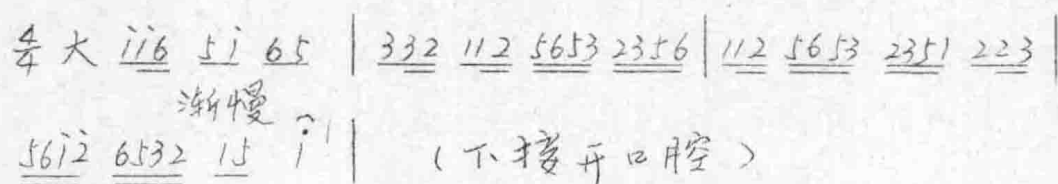 4/4 大 i̇i̇6 5i̇ 65 | 332 112 5653 2356 | 112 5653 2351 223 |
渐慢
56i̇2̇ 6532 15 i̇ | （下接开口腔）